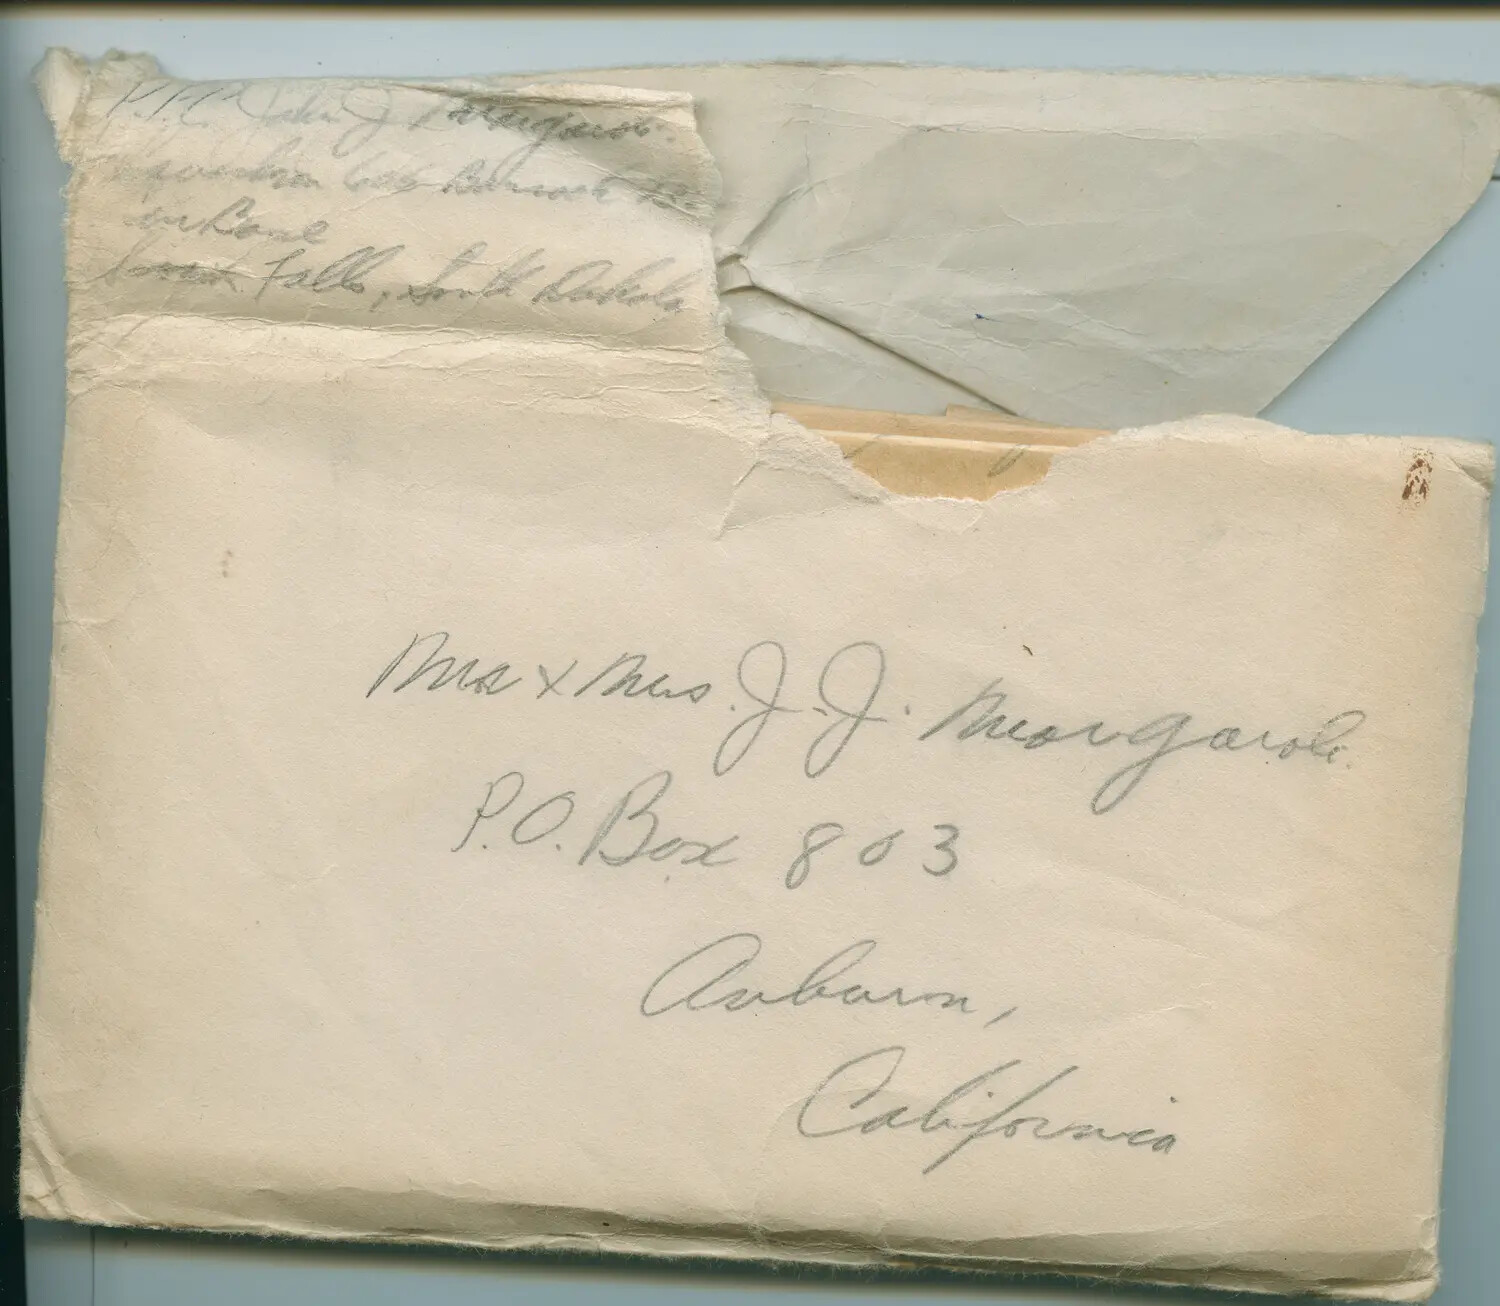 P.F.C. John J Margaroli.
Squadron 606 Barrack
Air Base
Sioux Falls, South Dakota
Mr x Mrs. J. J. Margaroli.
P.O. Box 803
Auburn,
California